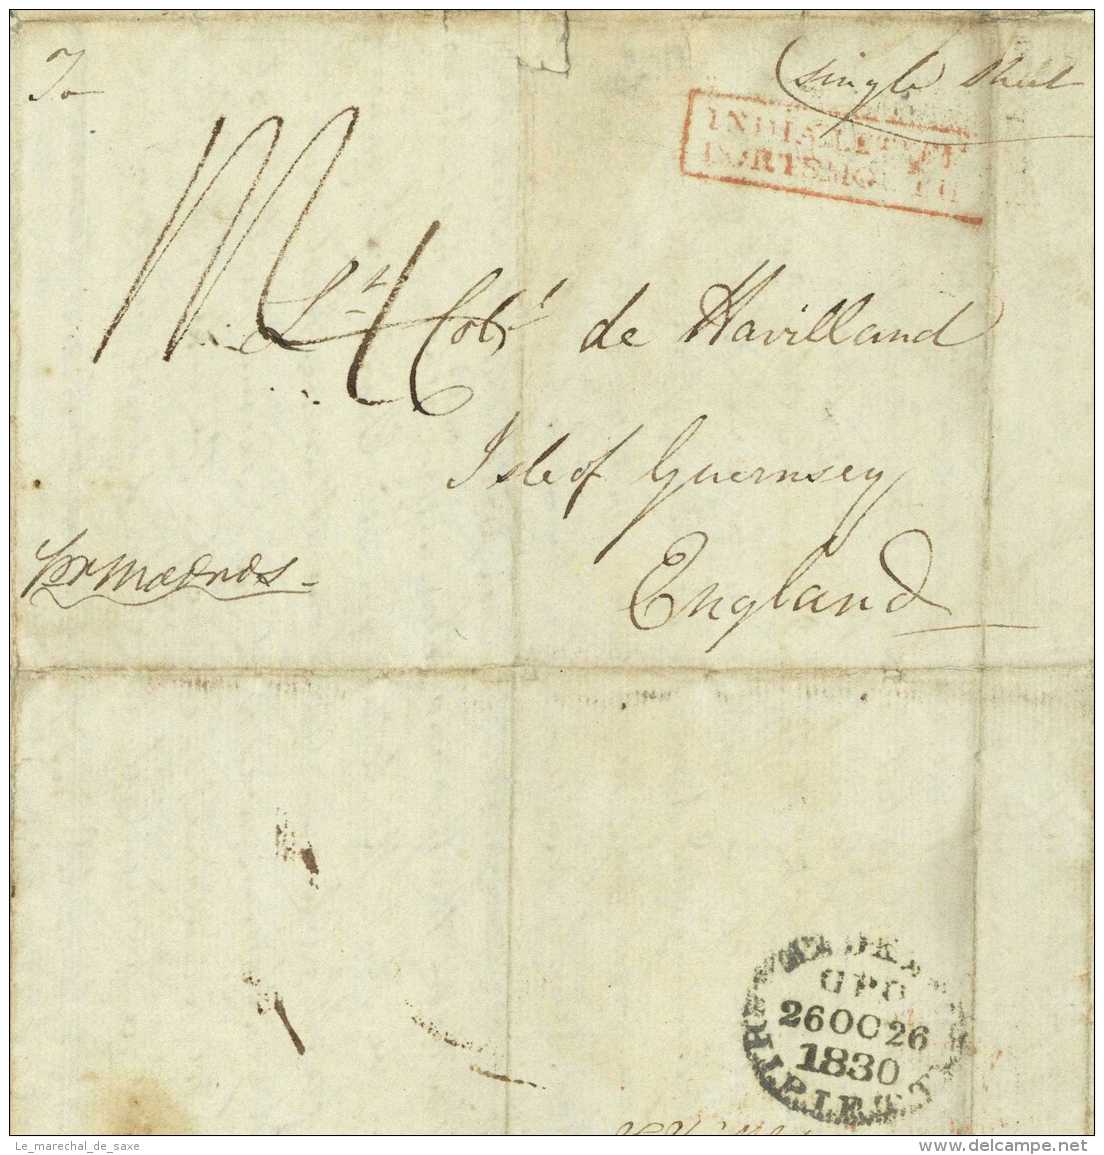 To
single Sheet
INDIA LETTER
PORTSMOUTH
Lt Col de Havilland
Isle of Guernsey
England
per Madras
GPO
26OC26
1830
Le_marechal_de_saxe
delcampe.net